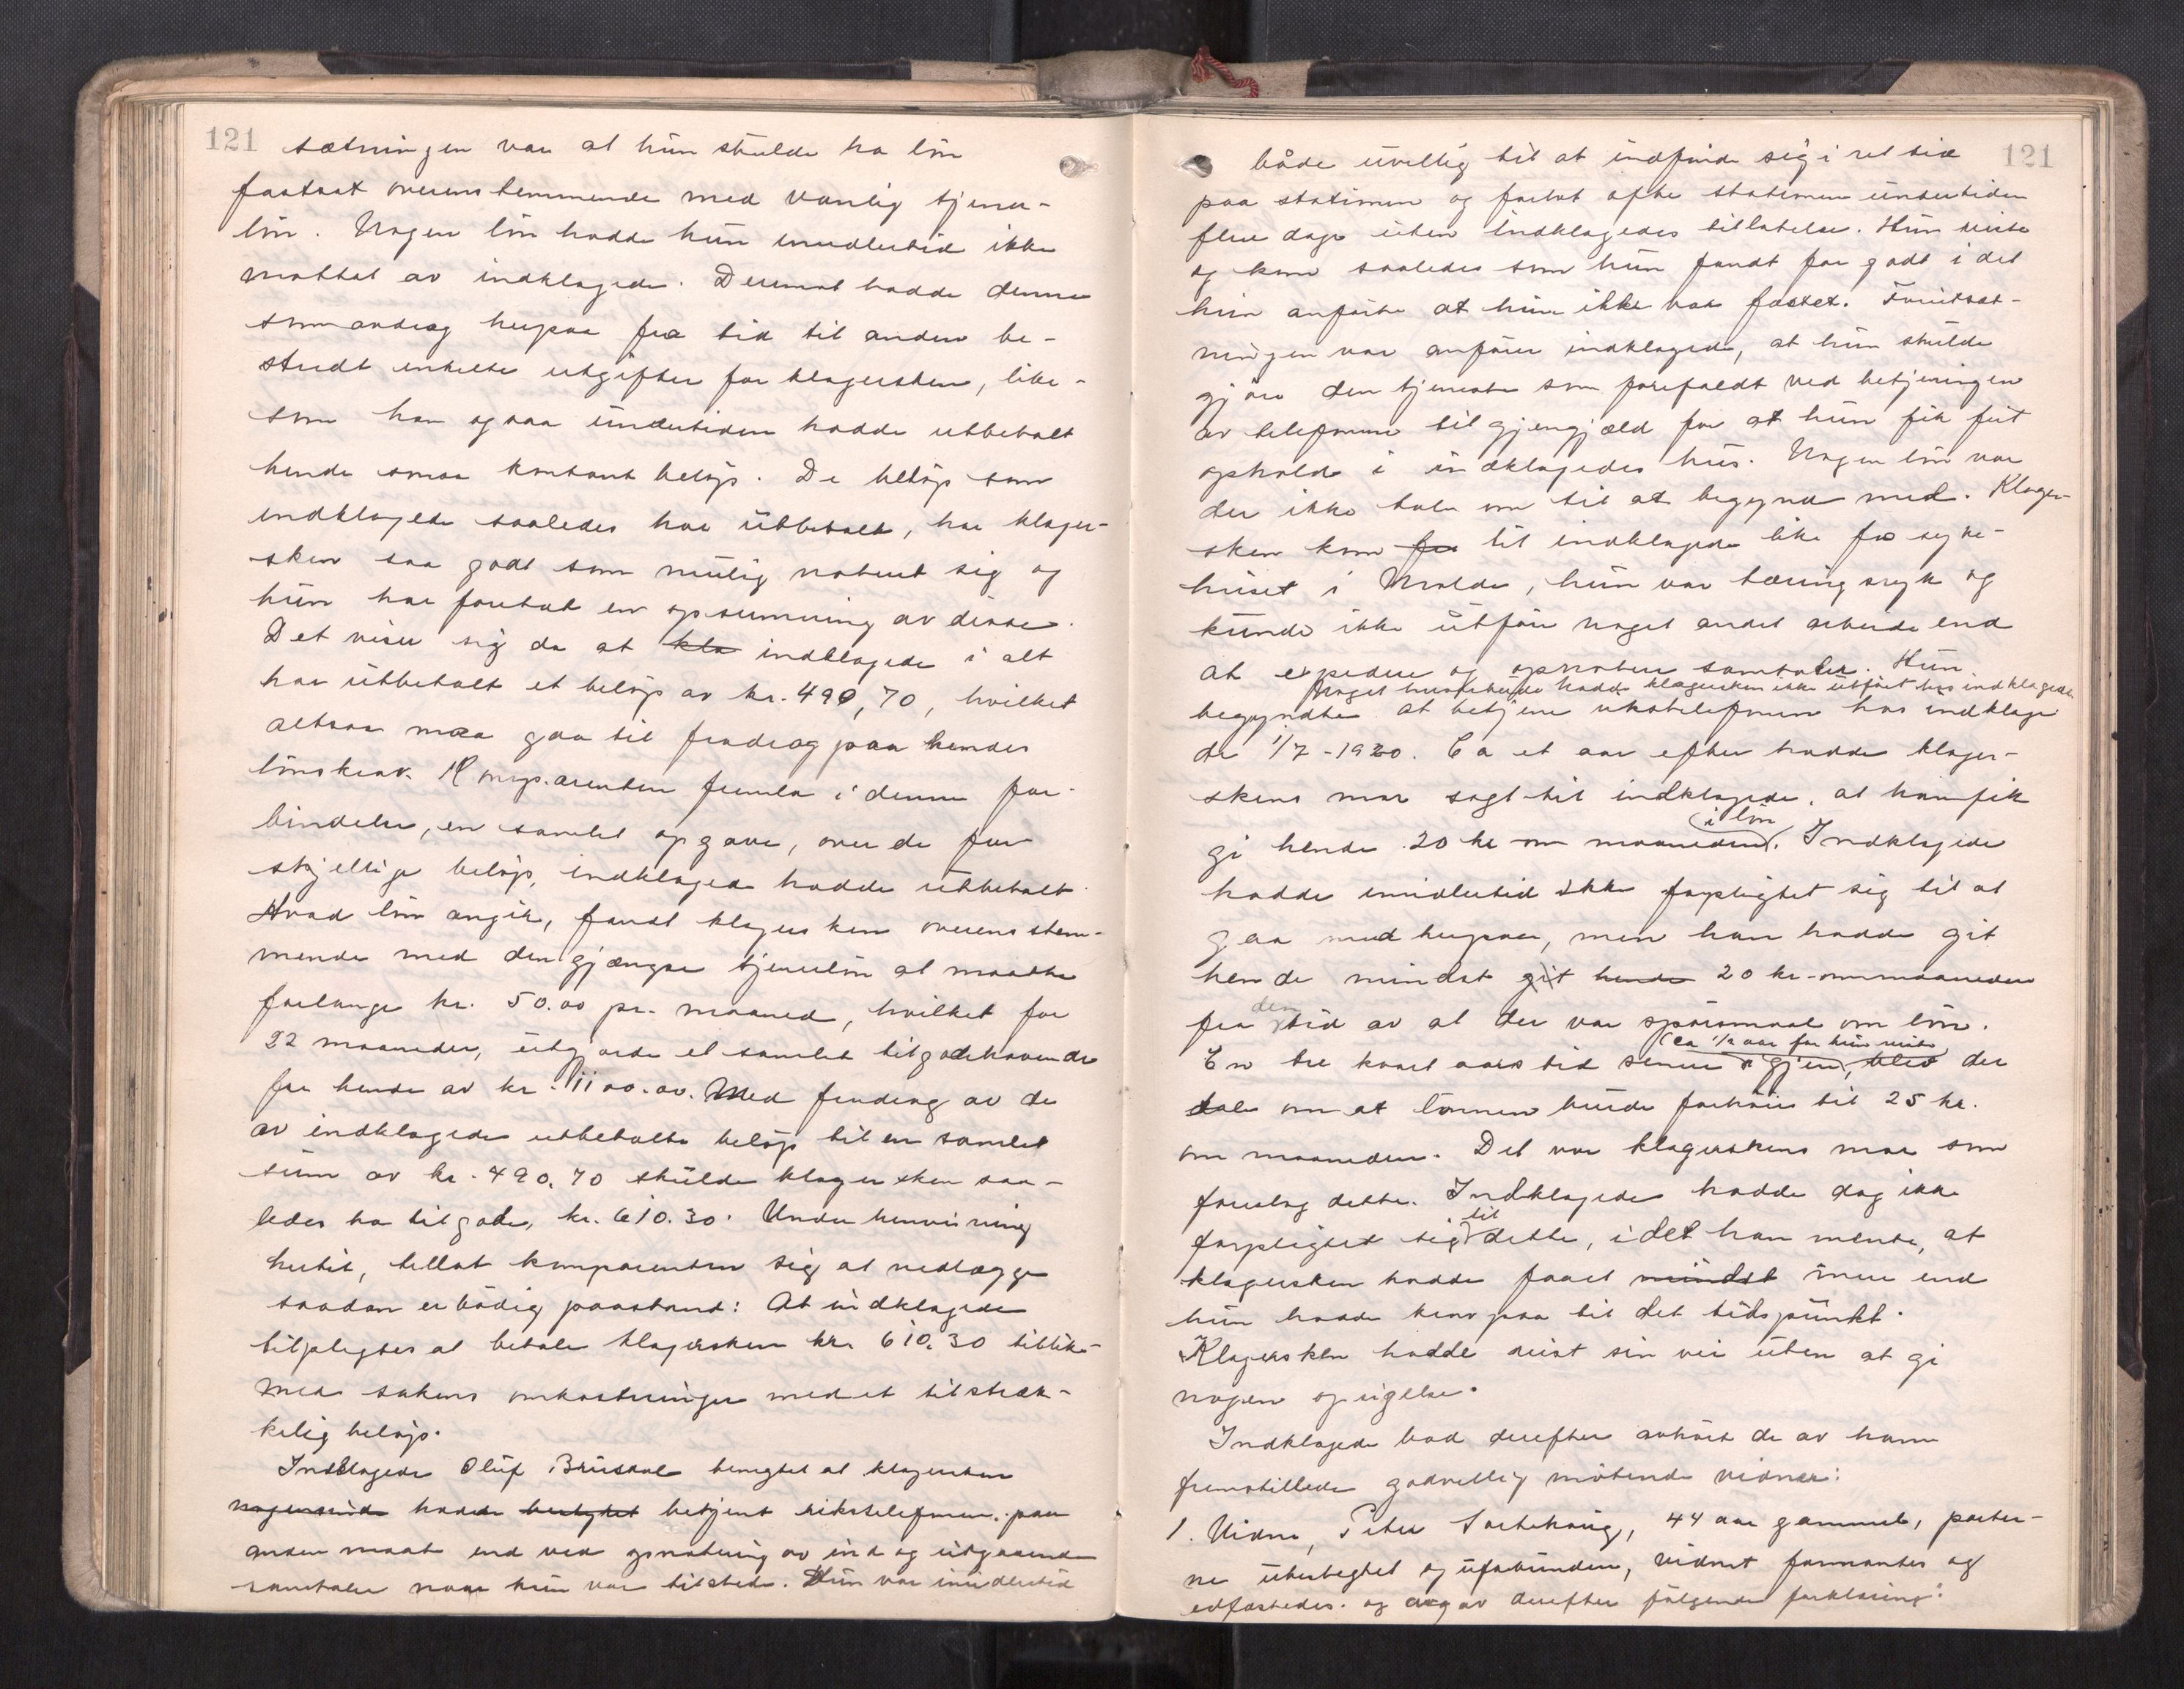 121
sætningen var at hun skulde ha løn
fastsat overensstemmende med vanlig tjener-
løn. Nogen løn hadde hun imidlertid ikke
mottat av indklagede. Derimot hadde denne
som avdrag herpaa fra tid til anden be-
stridt enkelte utgifter for klagersken, like-
som han ogsaa undertiden hadde utbetalt
hende smaa kontant beløp. De beløp som
indklagede saaledes har utbetalt, har klager-
sken saa godt som mulig notert sig og
hun har foretat en opsumming av disse.
Det viser sig da at kla indklagede i alt
har utbetalt et beløp av kr. 490,70, hvilket
altsaa maa gaa til fradrag paa hendes
lønskrav. Komparenten fremla i denne for-
bindelse, en samlet opgave, over de for-
skjellige beløp, indklagede hadde utbetalt.
Hvad løn angik, fandt klagersken overensstem-
mende med den gjængse tjenerløn at maatte
forlange kr. 50.00 pr. maaned, hvilket for
22 maaneder, utgjorde et samlet tilgodehavende
for hende av kr. 1100.00. Med fradrag av de
av indklagede utbetalte beløp til en samlet
sum av kr. 490.70 skulde klagersken saa-
ledes ha tilgode, kr. 610.30. Under henvisning
hertil, tillot komparenten sig at nedlægge
saadan erbødig paastand: At indklagede
tilpligtes at betale klagersken kr. 610.30 tillike-
med sakens omkostninger med et tilstræk-
kelig beløp.
Indklagede Oluf Brusdal benegtet at klagersken
nogensinde hadde betjent rikstelefonen paa
anden maate end ved opnotering av ind og utgaaende
samtaler naar hun var tilstede. Hun var imidlertid
121
både uvillig til at indfinde sig i ret tid
paa stationen og forlot ofte stationen undertiden
flere dage uten indklagedes tillatelse. Hun reiste
og kom saaledes som hun fandt for godt i det
hun anførte at hun ikke var fæstet. Forutsæt-
ningen var anfører indklagede, at hun skulde
gjøre den tjeneste som forefaldt ved betjeningen
av telefonen til gjengjæld for at hun fik frit
ophold i indklagedes hus. Nogen løn var
der ikke tale om til at begynde med. Klager-
sken kom fra til indklagede like fra syke-
huset i Molde, hun var tæringssyk og
kunde ikke utføre noget andet arbeide end
at expedere og opnotere samtaler. Hun
Noget husarbeide hadde klagersken ikke utført hos indklagede
begyndte at betjene rikstelefonen hos indklage
de 1/7-1920. Ca et aar efter hadde klager-
skens mor sagt til indklagede, at han fik
i løn
gi hende 20 kr om maaneden. Indklagede
hadde imidlertid ikke forpligtet sig til at
gaa med herpaa, men han hadde git
hende mindst git hende 20 kr. om maaneden
den
fra tid av at der var spørsmaal om løn.
ca 1/2 aar før hun reiste
En tre kvart aars tid senere igjen, blev der
tale om at lønnen burde forhøies til 25 kr.
om maaneden. Det var klagerskens mor som
foreslog dette. Indklagede hadde dog ikke
til
forpligtet sig dette, i det han mente, at
klagersken hadde faaet mindst mere end
hun hadde krav paa til det tidspunkt.
Klagersken hadde reist sin vei uten at gi
nogen opsigelse.
Indklagede bad derefter avhørt de av ham
fremstillede godvillig møtende vidner:
1. Vidne, Peter Sortehaug, 44 aar gammel, parter-
ne ubeslegtet og uforbunden, vidnet formantes og
edfæstedes og avgav derefter følgende forklaring: